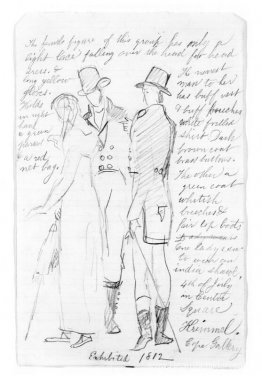 The female figure of this group has only a
light lace falling over the head for head
dress. &
long yellow
gloves.
Holds
in right
hand
a green
&
a red
net bag.
The nearest
man to her
has buff vest
& buff breeches
white frilled
shirt. Dark
brown coat
brass buttons.
The other a
green coat
whitish
breeches &
fair top boots
is
One lady seen
to wear an
india shawl.
4th of July
in Centre
Square
Krimmel.
Expo Gallery
Exhibited 1812